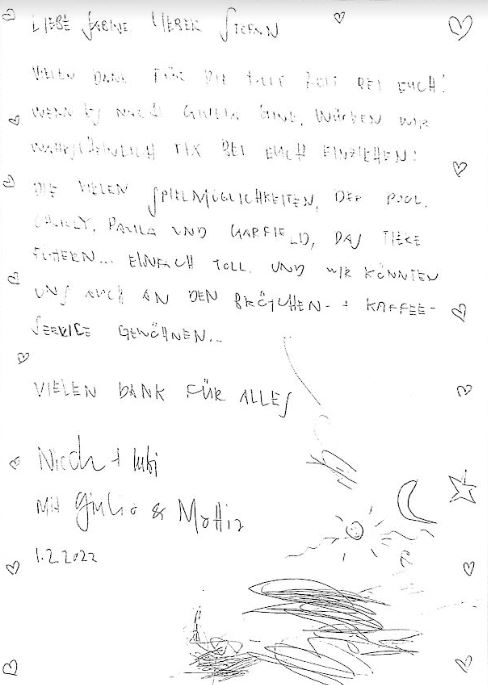 LIEBE SABINE LIEBER STEFAN
VIELEN DANK FÜR DIE TOLLE ZEIT BEI EUCH!
WENN ES NACH GIULIA GINGE, WÜRDEN WIR
WAHRSCHEINLICH FIX BEI EUCH EINZIEHEN!
DIE VIELEN SPIELMÖGLICHKEITEN, DER POOL,
PAULA UND GARFIELD, DAS TIERE
FÜTTERN... EINFACH TOLL. UND WIR KÖNNTEN
UNS AUCH AN DEN BRÖTCHEN- + KAFFEE-
SERVICE GEWÖHNEN...
VIELEN DANK FÜR ALLES
+
MIT Giulia & Mattia
1.2.2022